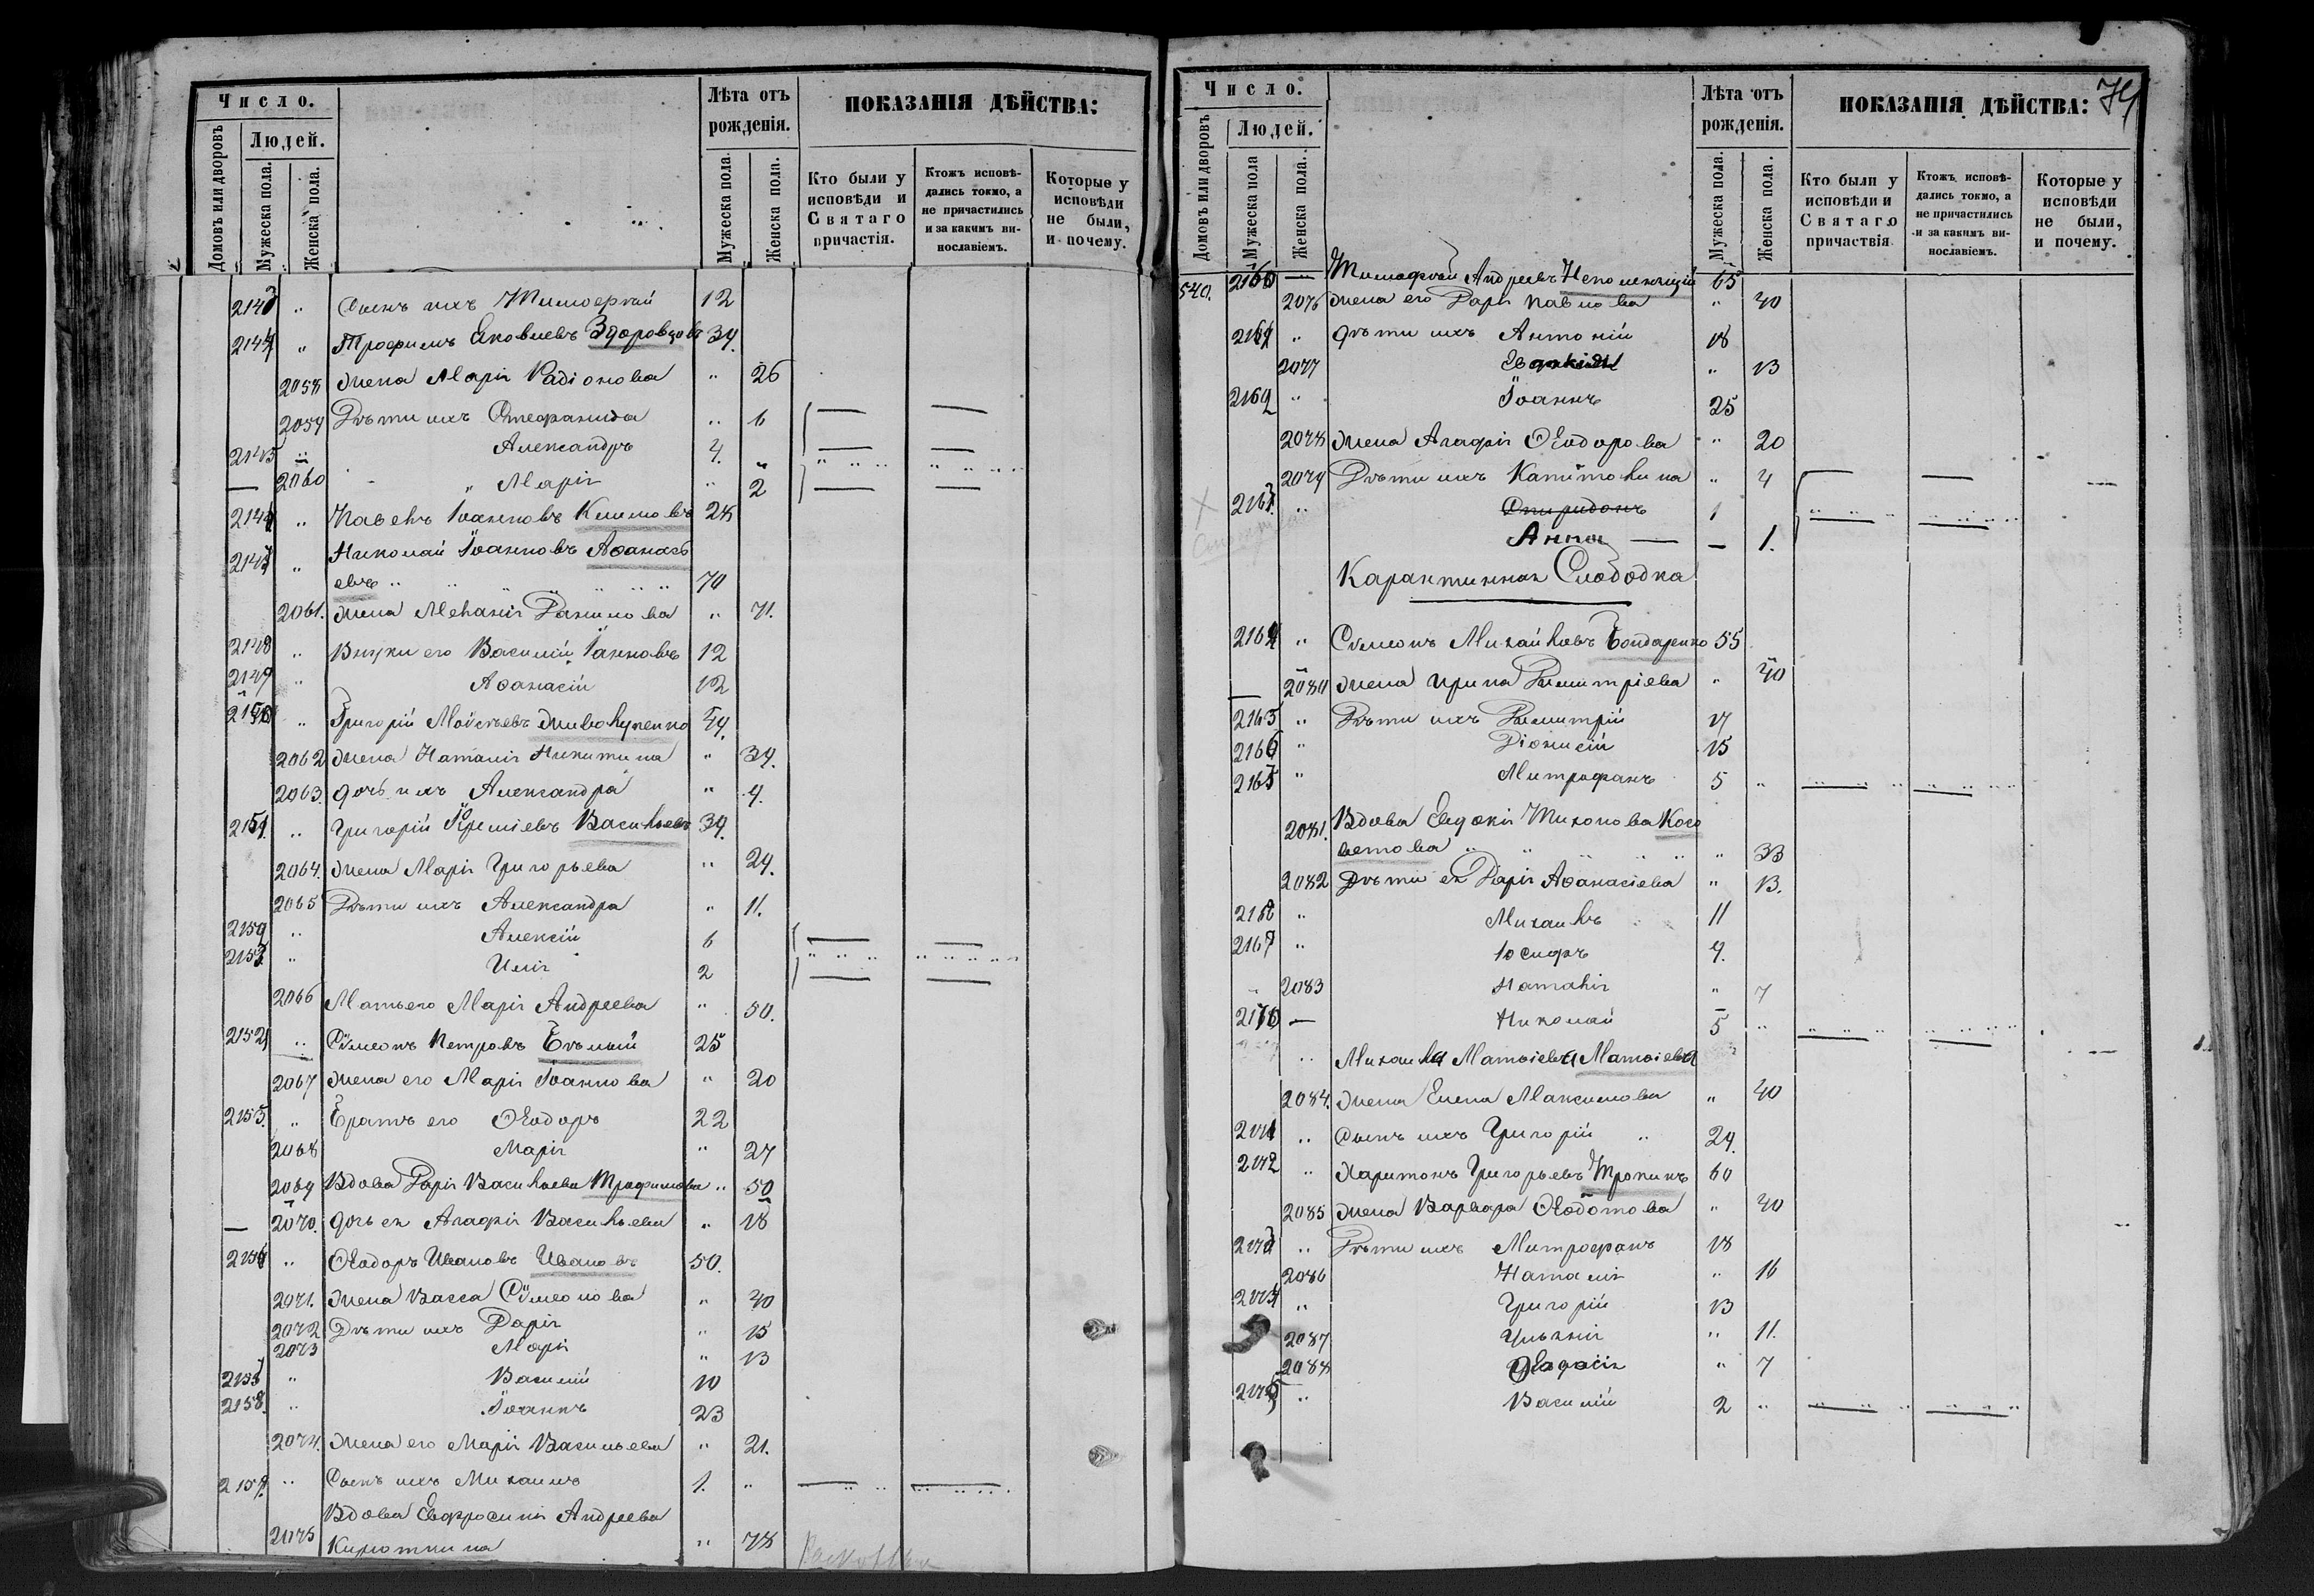 Число.
Людей.
Домовъ или дворовъ
Мужеска пола.
Женска пола.
Лѣта отъ
рожденія.
Мужеска пола.
Женска пола.
ПОКАЗАНІЯ ДѢЙСТВА:
Кто были у
исповѣди и
Святаго
причастія.
Ктожъ исповѣ-
дались токмо, а
не причастились
и за какимъ ви-
нославіемъ.
Которые у
исповѣди
не были,
и почему.
2143 " Сынъ ихъ Тимоѳей 12
2144 " Трофимъ Яковлевъ Здоровцовъ 34.
2058 Жена Марія Радіонова " 26
2059 Дѣти ихъ Стефанида " 6
2145 " Александръ 4. "
2060 " Марія " 2
" Павелъ Іоанновъ Климовъ 28
" Николай Іоанновъ Аѳанась
евъ 70
2061. Жена Меланія Данилова " 71.
2148 " Внуки его Василій Іоанновъ 12
2149 " Аѳанасій 12
" Григорій Моѵсеевъ 44.
2062 Жена Наталія Никитина " 34.
2063. дочь ихъ Александра " 4.
2151. " Григорій Васильевъ 34.
2064. Жена Марія Григорьева " 24.
2065 Дѣти ихъ Александра " 11.
" Алексій 6
" Илія 2
2066 Мать его Марія Андреева " 50.
" Сѵмеонъ Петровъ Бѣлый 25
2067 Жена его Марія Іоаннова " 20
2155. " Братъ его Ѳеодоръ 22
2068 Марія " 27
2069 Вдова Дарія Васильева Трофимова " 50
2070. дочь ея Агафія Васильева " 18
2156 " Ѳеодоръ Ивановъ Ивановъ 50.
2071. Жена Васса Сѵмеонова " 40
2072 Дѣти ихъ Дарія " 15
2073 Марія " 13
" Василій 10
2158. " Іоаннъ 23
2074. Жена его Марія Васильева " 21.
2159. " Сынъ ихъ Михаилъ 1. "
Вдова Евфросинія Андреева
2075 Кирюткина " 78
Число.
Людей.
Домовъ или дворовъ
Мужеска пола
Женска пола.
Лѣта отъ
рожденія.
Мужеска пола.
Женска пола.
ПОКАЗАНІЯ ДѢЙСТВА:
Кто были у
исповѣди и
Святаго
причаствія
Ктожъ исповѣ-
дались токмо, а
не причастились
и за какимъ ви-
нославіемъ.
Которые у
исповѣди
не были,
и почему.
540. 2160 — Тимофей Андреевъ Непомнящій 65
2076 Жена его Дарія Павлова " 40
2161 " дѣти ихъ Антоній 18
2077 " 13
2162 " Іоаннъ 25
2078 Жена Агафія Ѳеодорова " 20
2079 Дѣти ихъ Капитолина " 4
2163. " Спиридонъ 1
Анна — — 1.
Карантинная Слободка
2164 " Сѵмеонъ Михайловъ Бондаренко 55
2080 Жена Ирина Димитріева " 40
2165 " Дѣти ихъ Димитрій 17
2166 " Діонисій 15
2167 " Митрофанъ 5 "
2081. Вдова Евдокія Тихонова Косо
ветова " 33
2082 Дѣти ея Дарія Аѳанасіева " 13.
2168 " Михаилъ 11
2169 " Іосифъ 9.
2083 Наталія " 7
2170 — Николай 5 "
" Михаила Матвіева Матвіева
2084. Жена Елена Максимова " 40
2171 " Сынъ ихъ Григорій " 24.
2172 " Харитонъ Григорьевъ Тропинъ 60
2085 Жена Варвара Ѳеодотова " 40
2173 " Дѣти ихъ Митрофанъ 18
2086 Наталія " 16
2174 " Григорій 13
2087 Ульянія " 11.
2088 " 7
2175 " Василій 2 "